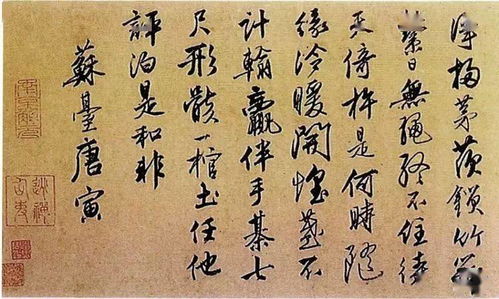 净掃茅茨鎖竹
日無繩終不住待
天倚杵是何時隨
緣冷暖開不
計輸贏伴手棊七
尺形骸一棺土任他
評泊是和非
蘇臺唐寅